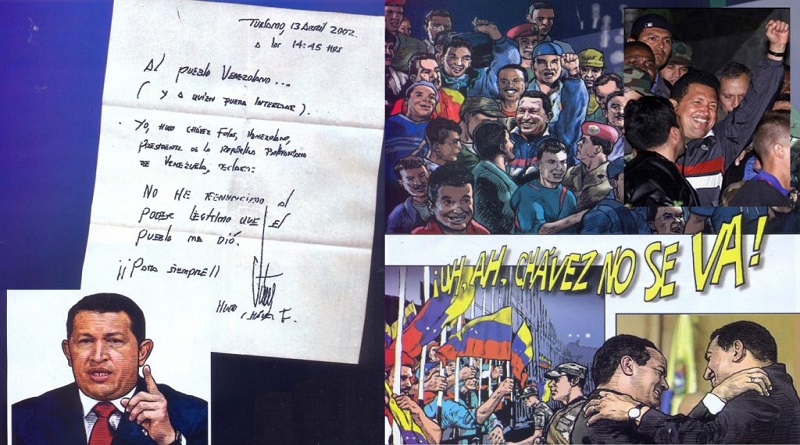 TURIAMO, 13 ABRIL 2002
A las 14:45 HRS
Al pueblo Venezolano...
(y a quien pueda interesar).
Yo, Hugo Chávez Frías, Venezolano,
Presidente de la República Bolivariana
de Venezuela, declaro:
NO HE RENUNCIADO Al
PODER LEGÍTIMO QUE El
pueblo me dió.
¡¡PARA SIEMPRE!!
HUGO Chávez F.
¡UH, AH, CHÁVEZ NO SE VA!